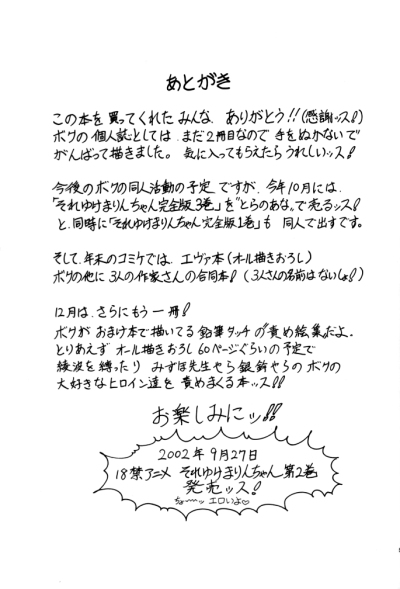 あとがき
この本を買ってくれたみんな、ありがとう!!(感謝ッス!)
ボクの個人誌としては、まだ2冊目なので手をぬかないで
がんばって描きました。気に入ってもらえたらうれしいッス!
今後のボクの同人活動の予定ですが、今年10月には、
「それゆけまりんちゃん完全版3巻」を"とらのあな"で売るッス!
と、同時に「それゆけまりんちゃん完全版1巻」も同人で出すです。
そして、年末のコミケでは、エヴァ本(オール描きおろし)
ボクの他に3人の作家さんの合同本!(3人さんの名前はないしょ!)
12月は、さらにもう一冊!
ボクがおまけ本で描いてる鉛筆タッチの"責め絵集"だよ。
とりあえずオール描きおろし60ページぐらいの予定で
綾波を縛ったりみずほ先生やら銀鈴やらのボクの
大好きなヒロイン達を責めまくる本ッス!!
お楽しみにッ!!
2002年9月27日
18禁アニメそれゆけまりんちゃん第2巻
発売ッス!
ちょ〜ッエロいよ♡